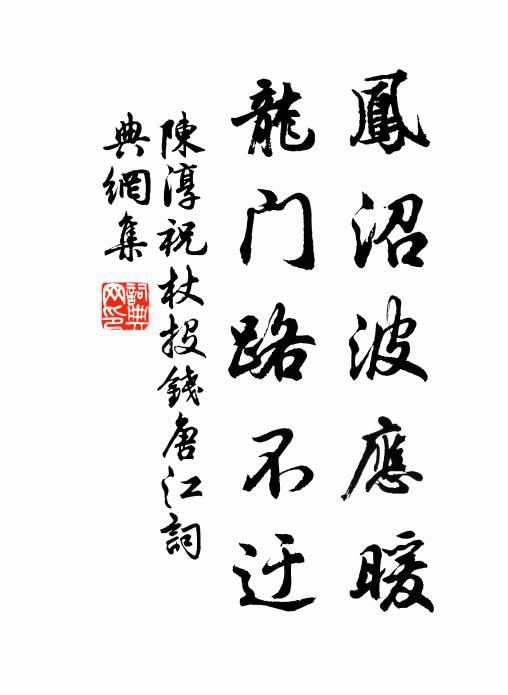 鳳沼波應暖
龍门路不迂
陳淳祝杖投錢唐江詞
典網集
詞典
网印